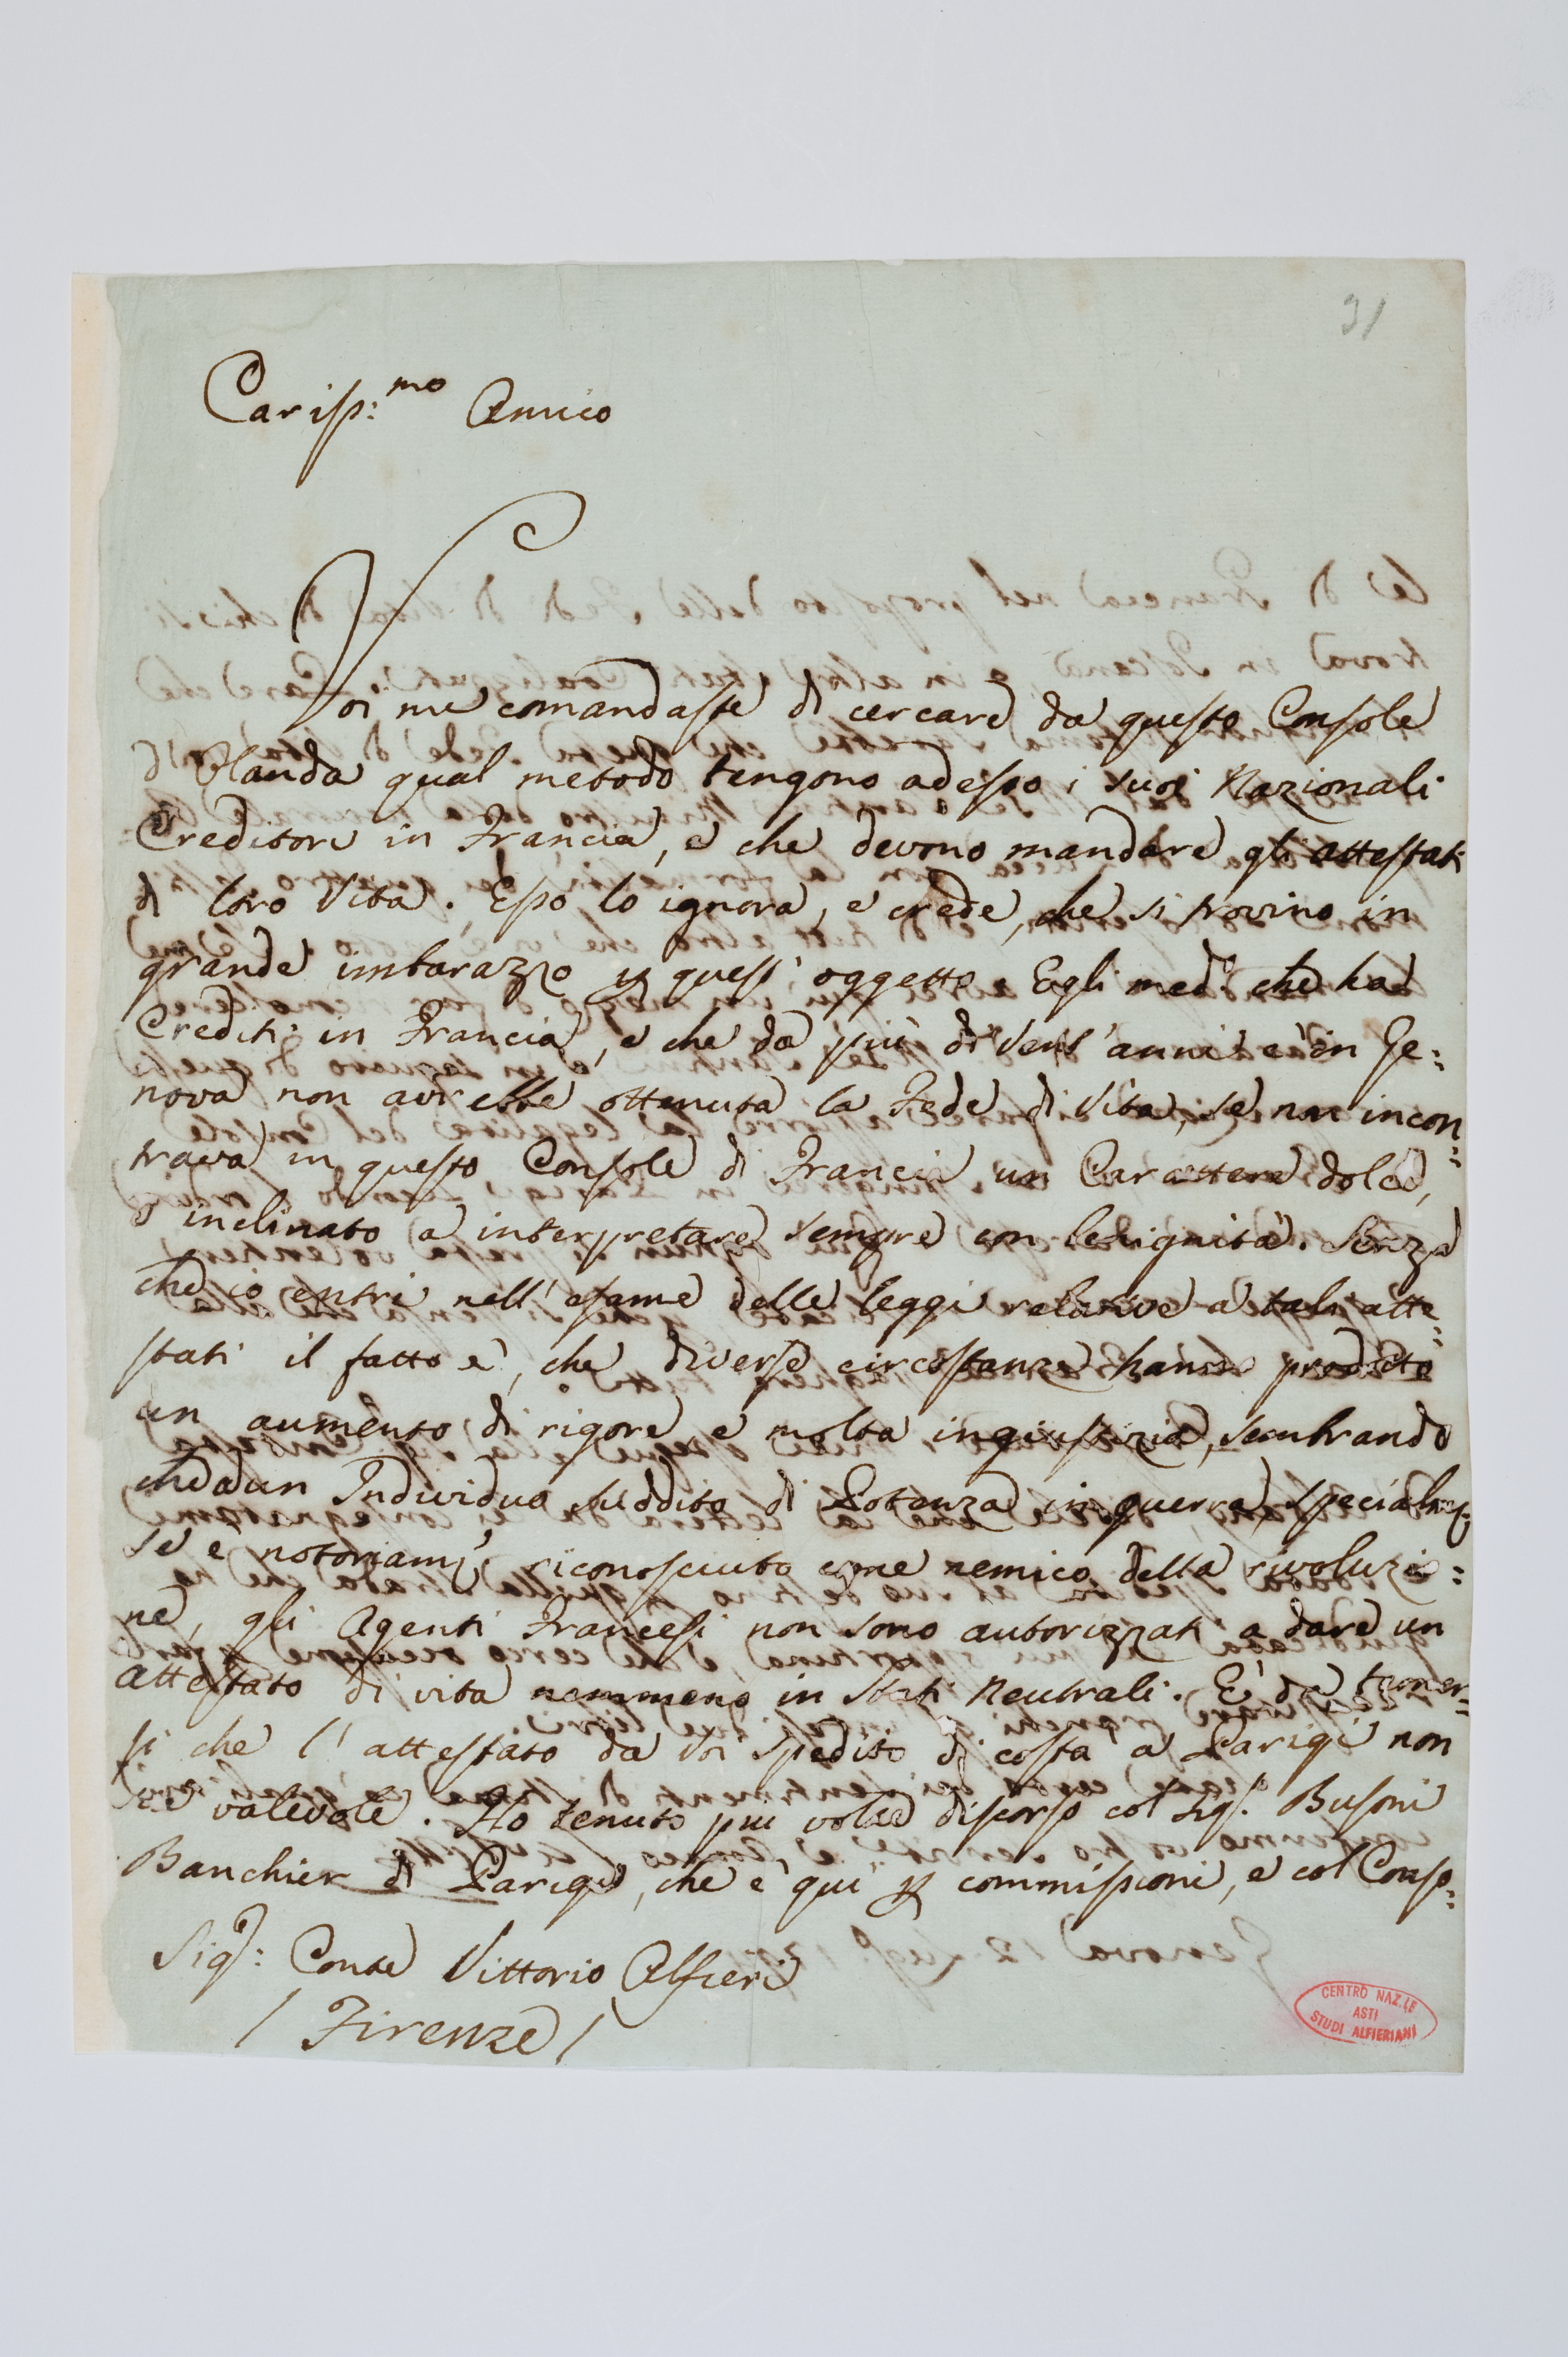 31
Cariss:mo Amico
Voi me comandaste di cercare da questo Console
d'Olanda qual metodo tengono adesso i suoi Nazionali
Creditori in Francia, e che devono mandare gli attestati
di loro Vita. Esso lo ignora, e crede, che si trovino in
grande imbarazzo per quest'oggetto. Egli med:o che ha
Crediti in Francia, e che da più di vent'anni è in Ge=
nova non avrebbe ottenuta la Fede di Vita, se non incon=
trava in questo Console di Francia un Carattere dolce,
e inclinato a interpretare sempre con benignità. Senza
che io entri nell'esame delle leggi relative a tali atte=
stati il fatto è, che diverse circostanze hanno prodotto
un aumento di rigore, e molta ingiustizia, sembrando
che ad un Individuo suddito di Potenza in guerra, specialm:e
se è notoriam:e riconosciuto come nemico della rivoluzio=
ne, gli Agenti Francesi non sono autorizzati a dare un
attestato di vita nemmeno in Stati Neutrali. E' da temer=
si che l'attestato da voi spedito di costà a Parigi non
sia valevole. Ho tenuto piu volte discorso col Sig:r Busoni
Banchier di Parigi, che è qui per commissioni, e col Conso=
Sig:r Conte Vittorio Alfieri
/ Firenze /
CENTRO NAZ.LE
ASTI
STUDI ALFIERIANI